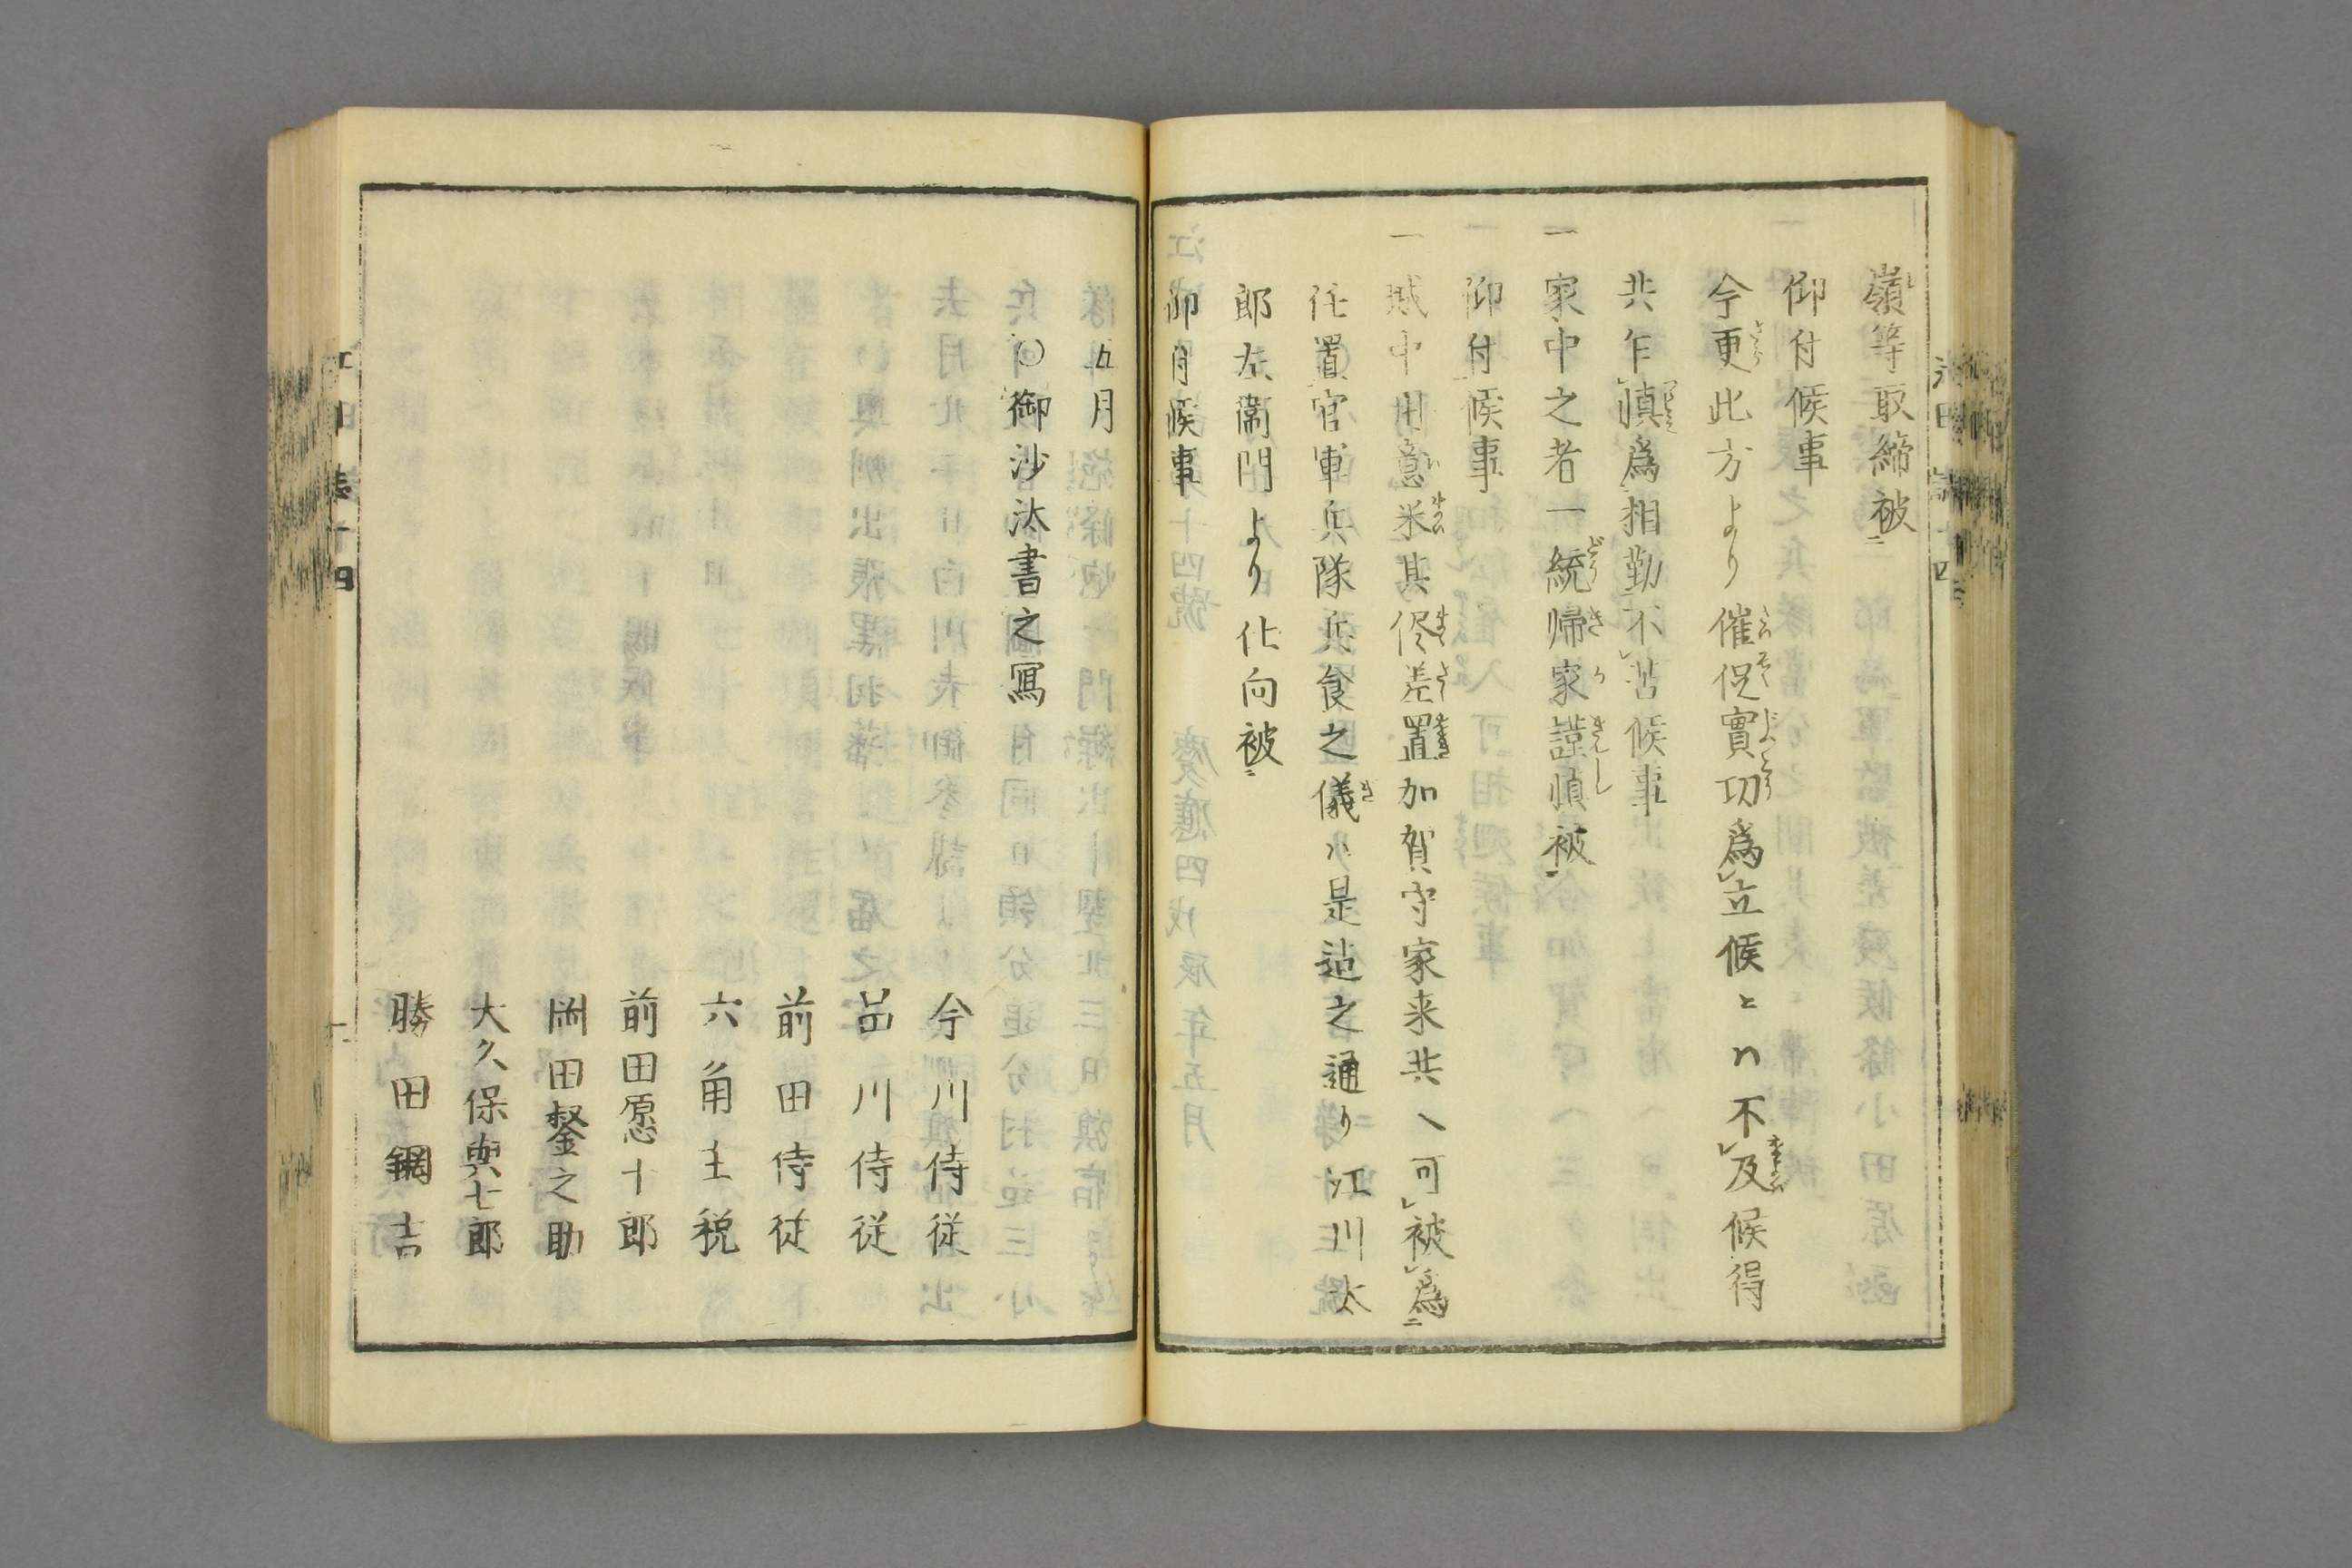 嶺等取締被
仰付候事
今更此方より催促實功為立候とハ不及候得
共乍慎為相勤不苦候事
一家中之者一統帰家謹慎被
仰付候事
一城中用意米其侭差置加賀守家来共へ可被為
任置官軍兵隊兵食之儀ハ是迠之通り江川太
郎左衞門より仕向被
仰付候事
五月
○御沙汰書之冩
今川侍従
畠川侍従
前田侍従
六角主税
前田愿十郎
岡田鍳之助
大久保與七郎
勝田鋼吉